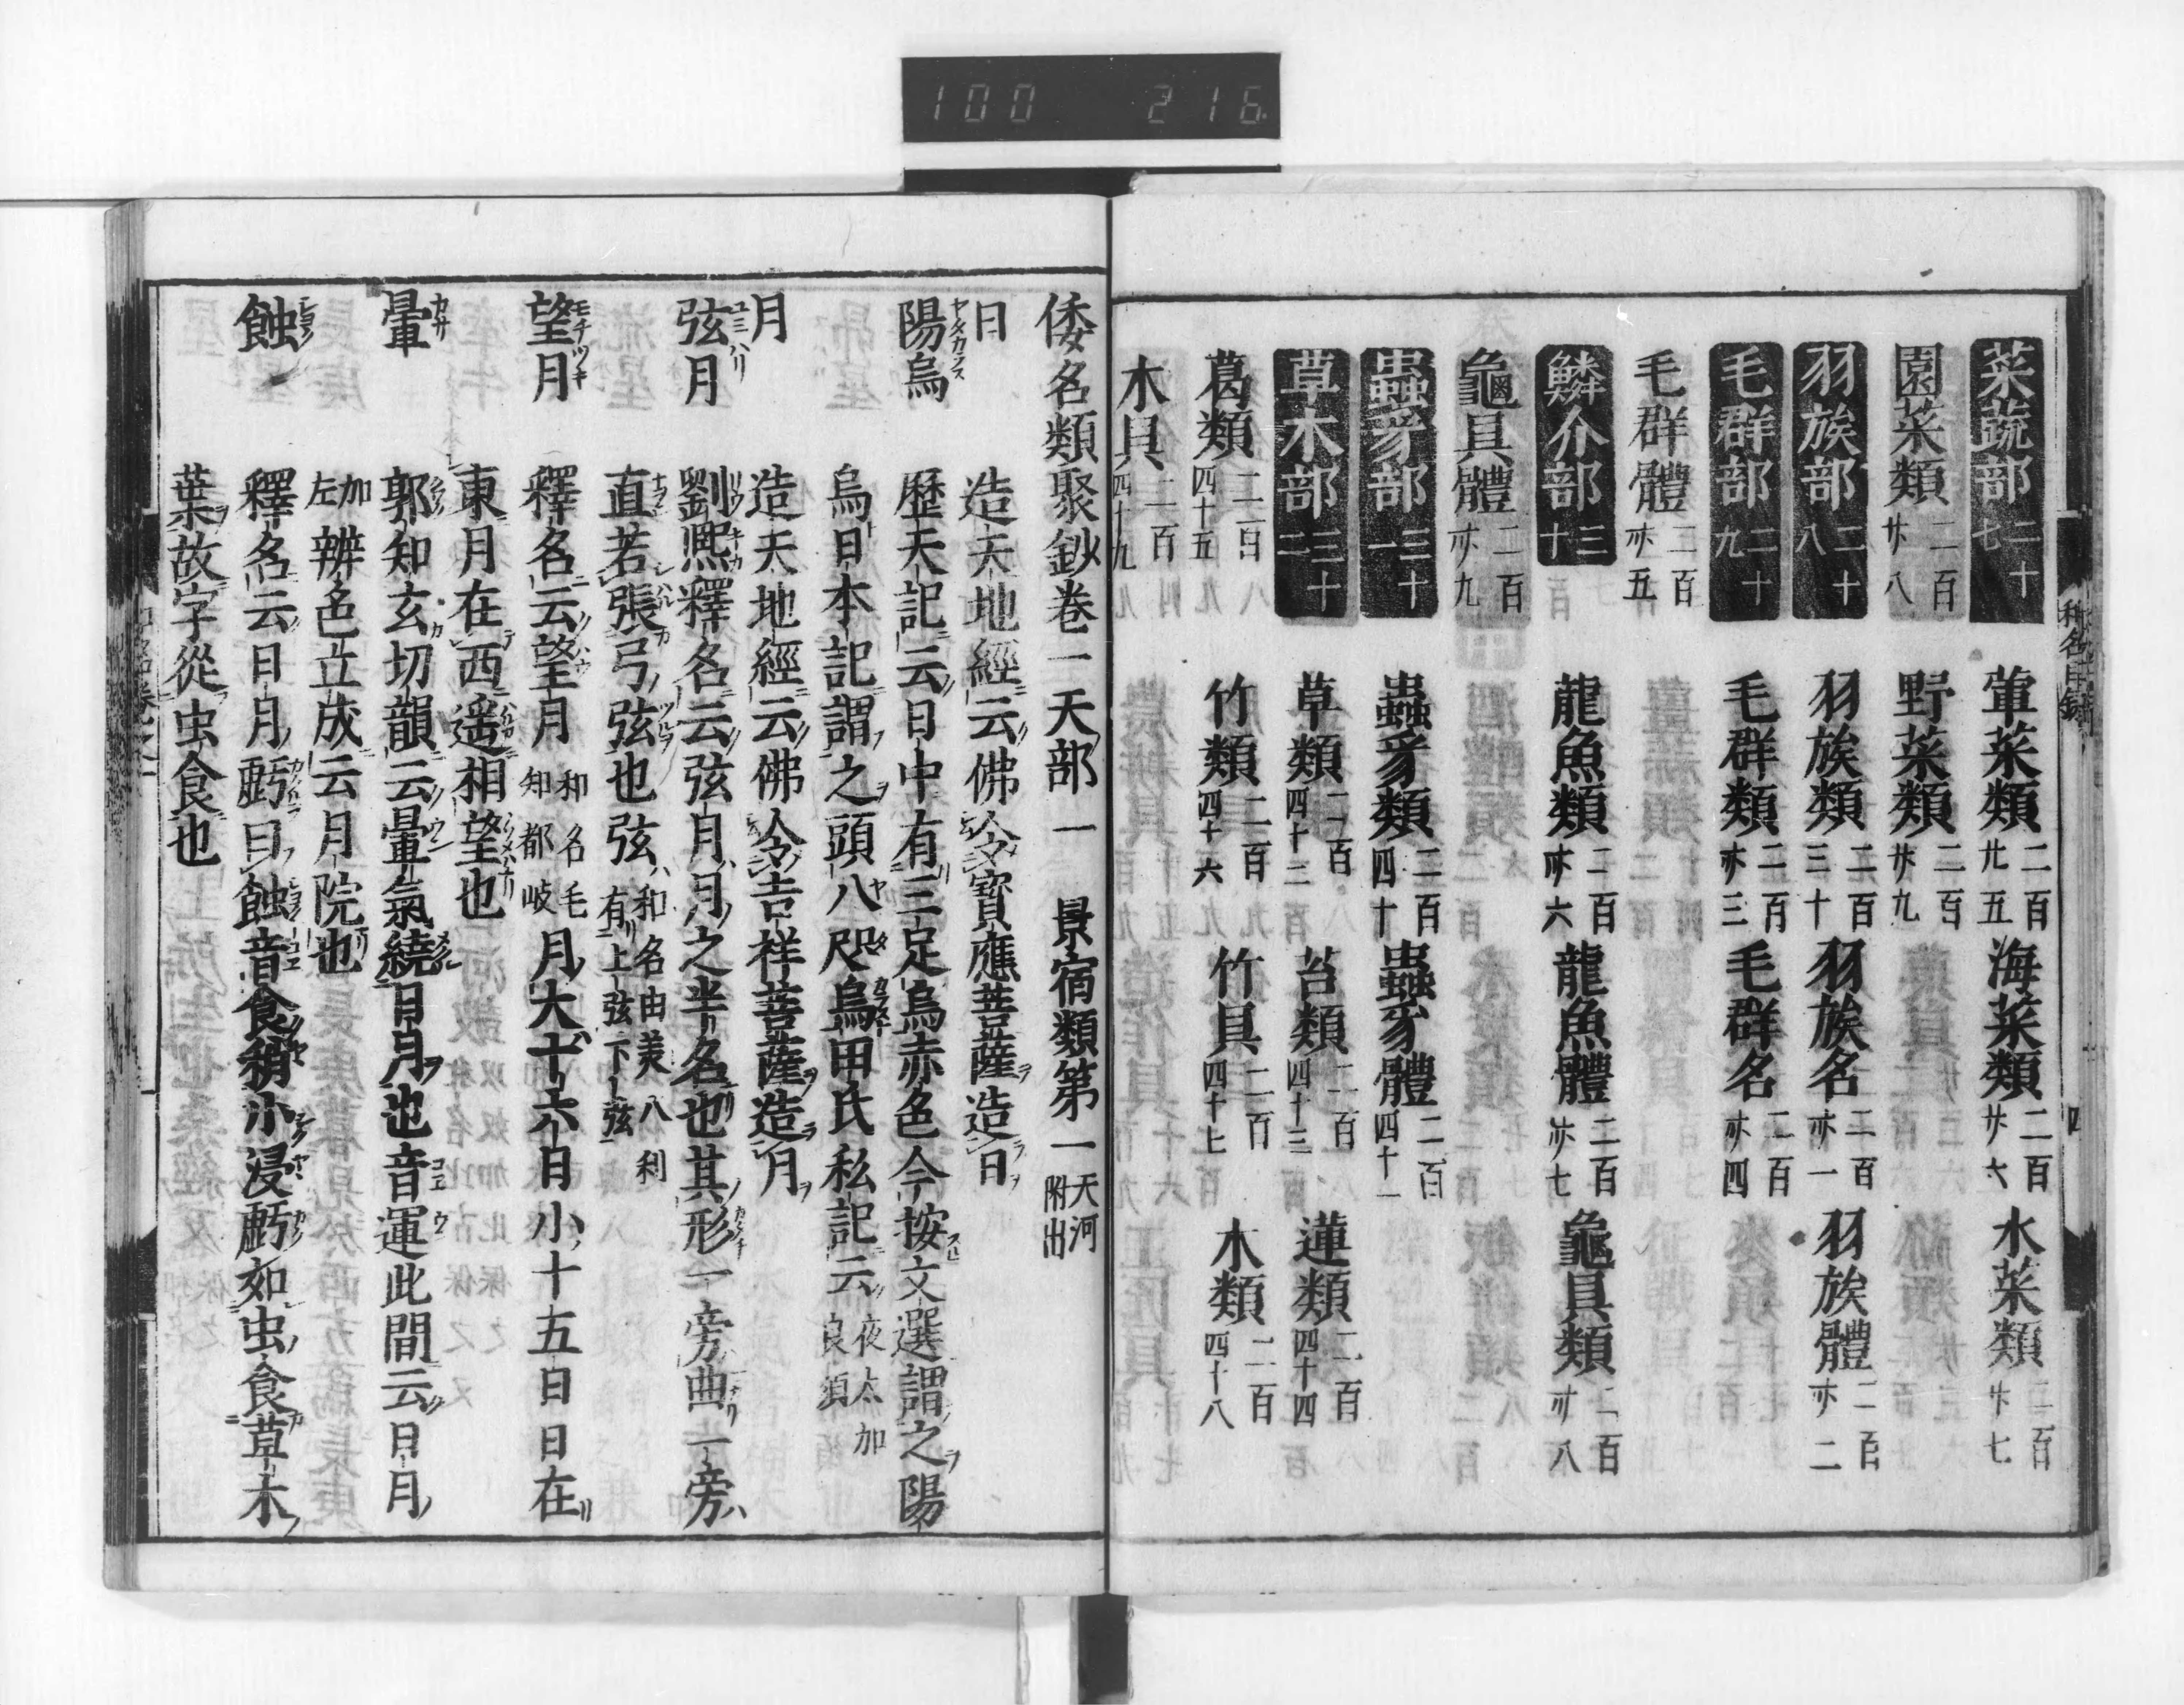 100 216
菜蔬部二十七 葷菜類二百廿五 海菜類二百廿六 水菜類二百廿七
園菜類二百廿八 野菜類二百廿九
羽族部二十八 羽族類二百三十 羽族名二百卅一 羽族體二百卅二
毛群部二十九 毛群類二百卅三 毛群名二百卅四
毛群體二百卅五
鱗介部三十 龍魚類二百卅六 龍魚體二百卅七 龜貝類二百卅八
龜貝體二百卅九
蟲豸部三十一 蟲豸類二百四十 蟲豸體二百四十一
草木部三十二 草類二百四十二 苔類二百四十三 蓮類二百四十四
葛類二百四十五 竹類二百四十六 竹具二百四十七 木類二百四十八
木具二百四十九
倭名類聚鈔卷一 天部一 景宿類第一天河附出
日 造天地經云佛令寶應菩薩造日
陽烏 歷天記云日中有三足烏赤色今按文選謂之陽
烏日本記謂之頭八咫烏田氏私記云夜太加良須
月 造天地經云佛令吉祥菩薩造月
弦月 劉熈釋名云弦月月之半名也其形一旁曲一旁
直若張弓弦也弦和名由美八利有上弦下弦
望月 釋名云望月和名毛知都岐月大十六日小十五日日在
東月在西遥相望也
暈 郭知玄切韻云暈氣繞日月也音運此間云日月
加左辨色立成云月院也
蝕 釋名云日月虧曰蝕音食稍小浸虧如虫食草木
葉故字從虫食也